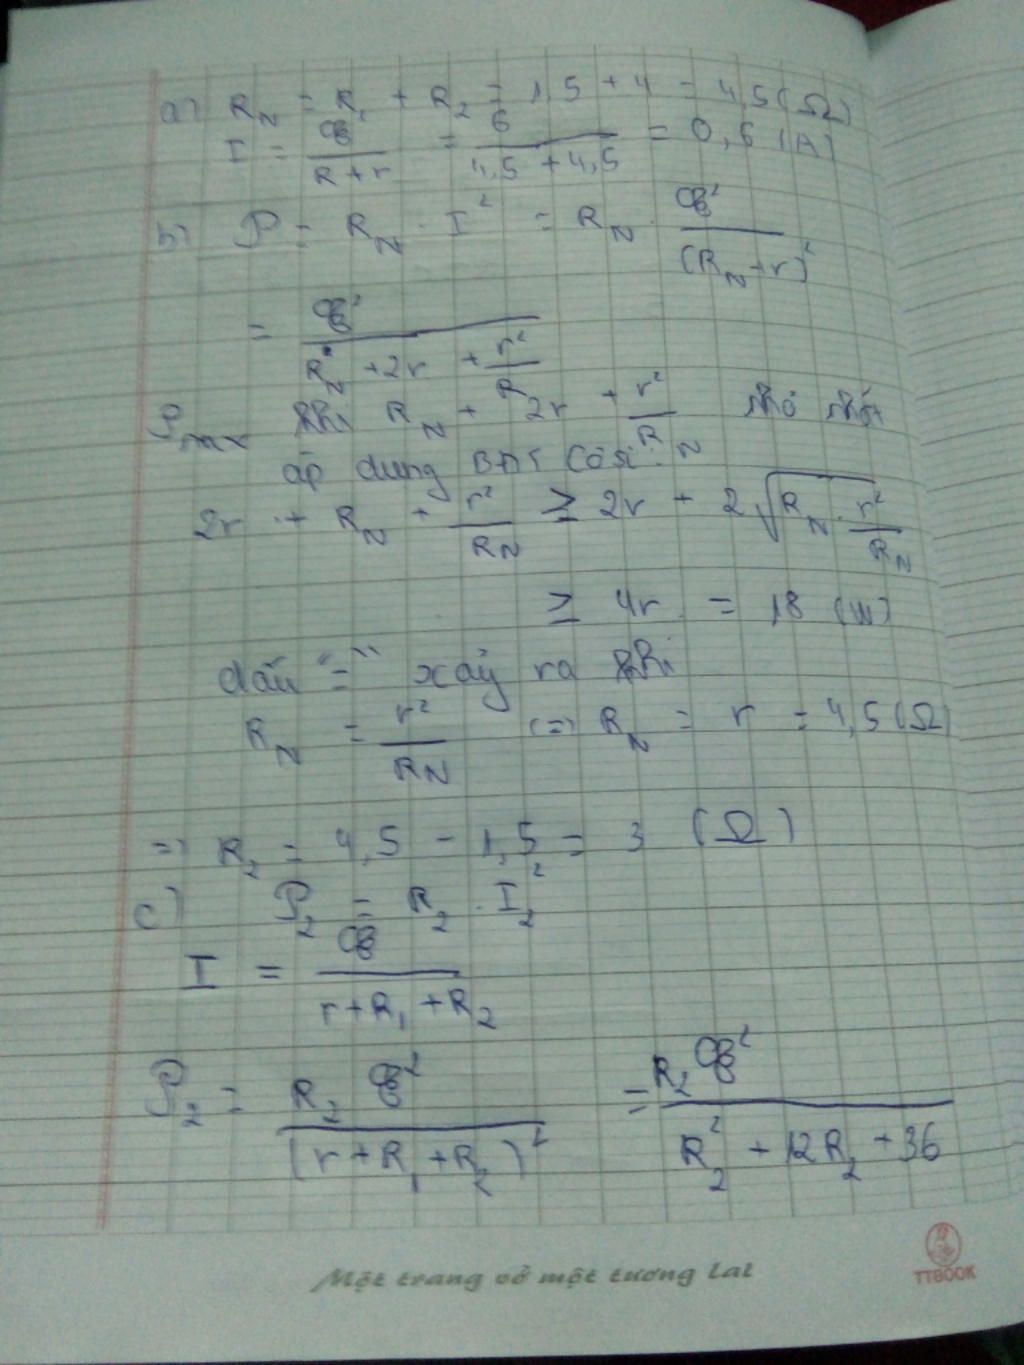 a) R_N = R_1 + R_2 = 1,5 + 4 = 4,5 (Ω)
I = ℰ / (R + r) = 6 / (4,5 + 4,5) = 0,6 (A)
b) P = R_N . I² = R_N . ℰ² / (R_N + r)²
= ℰ² / (R_N + 2r + r²/R)
P_max khi R_N + 2r + r²/R_N nhỏ nhất
áp dụng BĐT Côsi:
2r + R_N + r²/R_N ≥ 2r + 2√(R_N . r²/R_N)
≥ 4r = 18 (W)
dấu "=" xảy ra khi
R_N = r²/R_N (=) R_N = r = 4,5 (Ω)
=> R_2 = 4,5 - 1,5 = 3 (Ω)
c) P_2 = R_2 . I_2²
I = ℰ / (r + R_1 + R_2)
P_2 = R_2 ℰ² / (r + R_1 + R_2)² = R_2 ℰ² / (R_2² + 12R_2 + 36)
Một trang vở một tương lai
TTBOOK